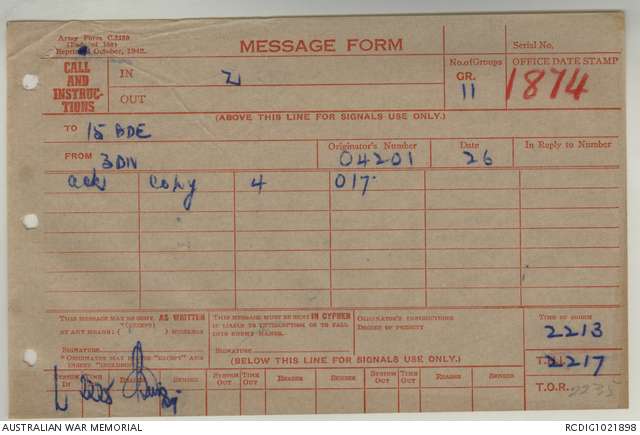 Army Form C.2136
Reprinted October, 1942.
MESSAGE FORM
Serial No.
CALL AND INSTRUC-TIONS
IN Z
OUT
No. of Groups
GR.
11
OFFICE DATE STAMP
1874
(ABOVE THIS LINE FOR SIGNALS USE ONLY.)
TO 15 BDE
FROM 3 DIV
Originator's Number
04201
Date
26
In Reply to Number
ack copy 4 017
THIS MESSAGE MAY BE SENT AS WRITTEN
BY ANY MEANS
SIGNATURE
THIS MESSAGE MUST BE SENT IN CYPHER
IF LIABLE TO INTERCEPTION OR TO FALL
INTO ENEMY HANDS.
SIGNATURE
ORIGINATOR'S INSTRUCTIONS
DEGREE OF PRIORITY
TIME OF ORIGIN
2213
2217
(BELOW THIS LINE FOR SIGNALS USE ONLY.)
IN
READER
SENDER
SYSTEM OUT
TIME OUT
READER
SENDER
SYSTEM OUT
TIME OUT
READER
SENDER
T.O.R. 2235
AUSTRALIAN WAR MEMORIAL
RCDIG1021898